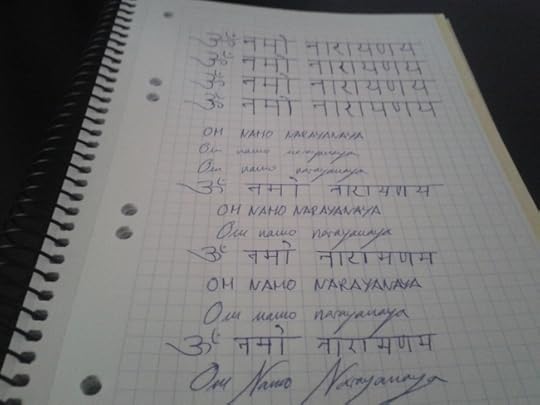 ॐ नमो नारायणय
ॐ नमो नारायणय
ॐ नमो नारायणय
ॐ नमो नारायणय
OM NAMO NARAYANAYA
Om namo narayanaya
Om namo narayanaya
ॐ नमो नारायणय
OM NAMO NARAYANAYA
Om namo narayanaya
ॐ नमो नारायणय
OM NAMO NARAYANAYA
Om namo narayanaya
ॐ नमो नारायणय
Om Namo Narayanaya